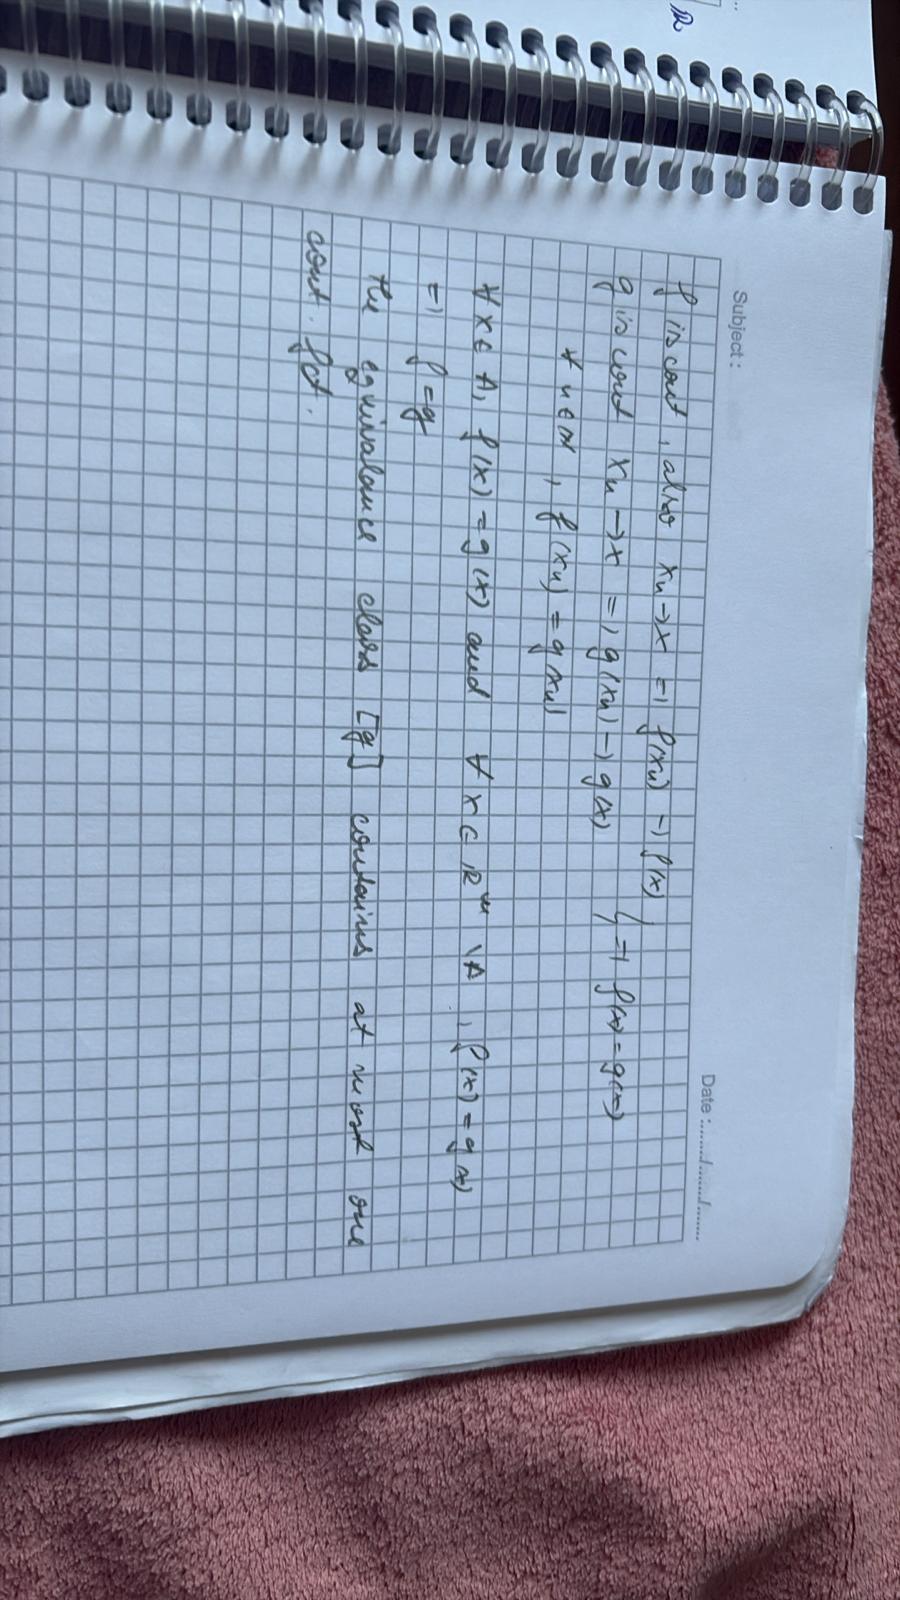 Subject : Date : ......./......./.......
f is cont, also xn → x ⇒ f(xn) → f(x)
g is cont xn → x ⇒ g(xn) → g(x) } ⇒ f(x) = g(x)
∀ n ∈ N, f(xn) = g(xn)
∀ x ∈ A, f(x) = g(x) and ∀ x ∈ R^m \ A, f(x) = g(x)
⇒ f = g
the equivalance class [g] contains at most one
cont. fct.
R